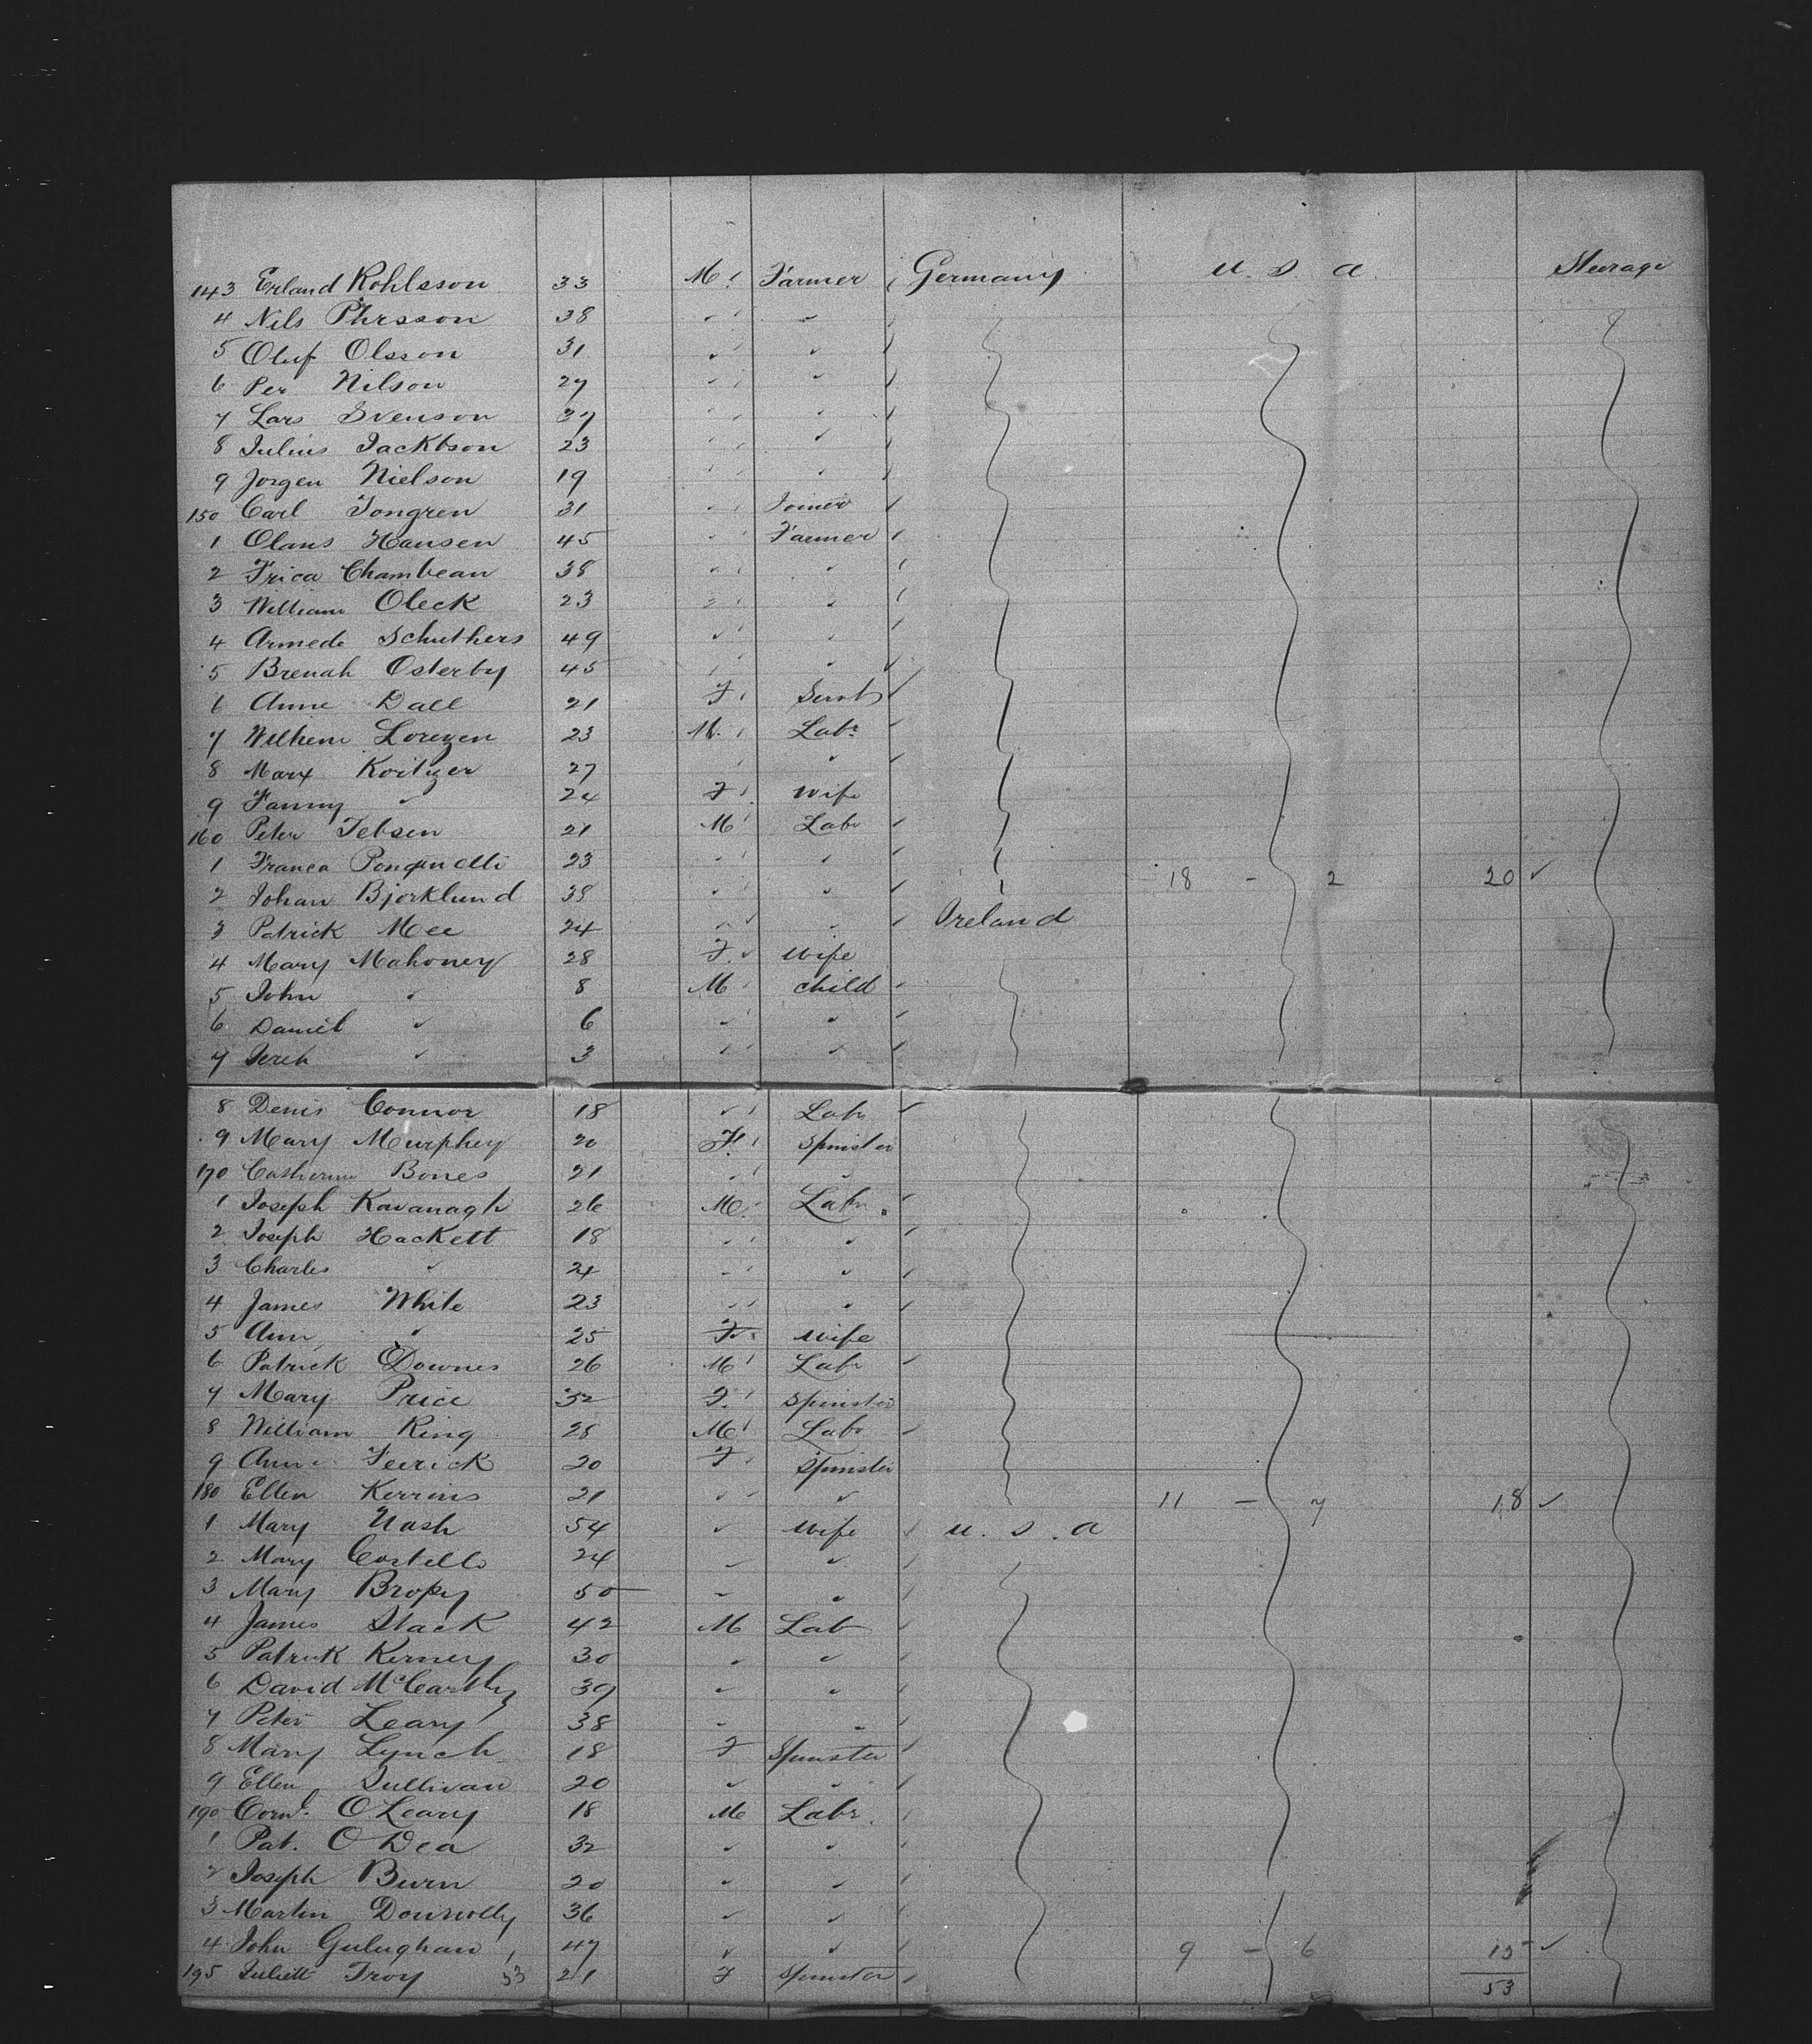 143 Erland Rohlsson 33 M Farmer Germany U. S. A. Steerage
4 Nils Phrsson 38 " "
5 Oluf Olsson 31 " "
6 Per Nilson 27 " "
7 Lars Svenson 37 " "
8 Julius Jackbson 23 " "
9 Jorgen Nielson 19 " "
150 Carl Tongren 31 " Joiner
1 Olans Hansen 45 " Farmer
2 Frica Chambeau 38 " "
3 William Oleck 23 " "
4 Armede Schuthers 49 " "
5 Brenah Osterby 45 " "
6 Anne Dall 21 F Servt
7 Wilhem Lorezen 23 M. Labr
8 Marx Koritzer 27 "
9 Fanny " 24 F Wife
160 Peter Jebsen 21 M Labr
1 Franca 23 " " 18 - 2 20
2 Johan Bjorklund 38 " "
3 Patrick Mee 24 " " Ireland
4 Mary Mahoney 28 F. Wife
5 John " 8 M child
6 Daniel " 6 " "
7 Jereh " 3 " "
8 Denis Connor 18 " Labr
9 Mary Murphey 20 F. Spinster
170 Catherine Bones 21 " "
1 Joseph Kavanagh 26 M. Labr.
2 Joseph Hackett 18 " "
3 Charles " 24 " "
4 James White 23 " "
5 Ann " 25 F. Wife
6 Patrick Downes 26 M Labr
7 Mary Price 32 F. Spinster
8 William King 28 M Labr
9 Anne Feerick 20 F Spinster
180 Ellen Kerrins 21 " " 11 - 7 18
1 Mary Nash 54 " Wife U. S. A
2 Mary Costello 24 " "
3 Mary Bropy 50 " "
4 James Stack 42 M Lab
5 Patrick Kerney 30 " "
6 David McCarthy 39 " "
7 Peter Leary 38 " "
8 Mary Lynch 18 F Spinster
9 Ellen Sullivan 20 " "
190 Cornl. O Leary 18 M Labr.
1 Pat. O Dea 32 " "
2 Joseph Burn 20 " "
3 Martin Donnolly 36 " "
4 John Gulughan 47 " " 9 - 6 15
195 Juliett Troy 53 21 F Spinster 53